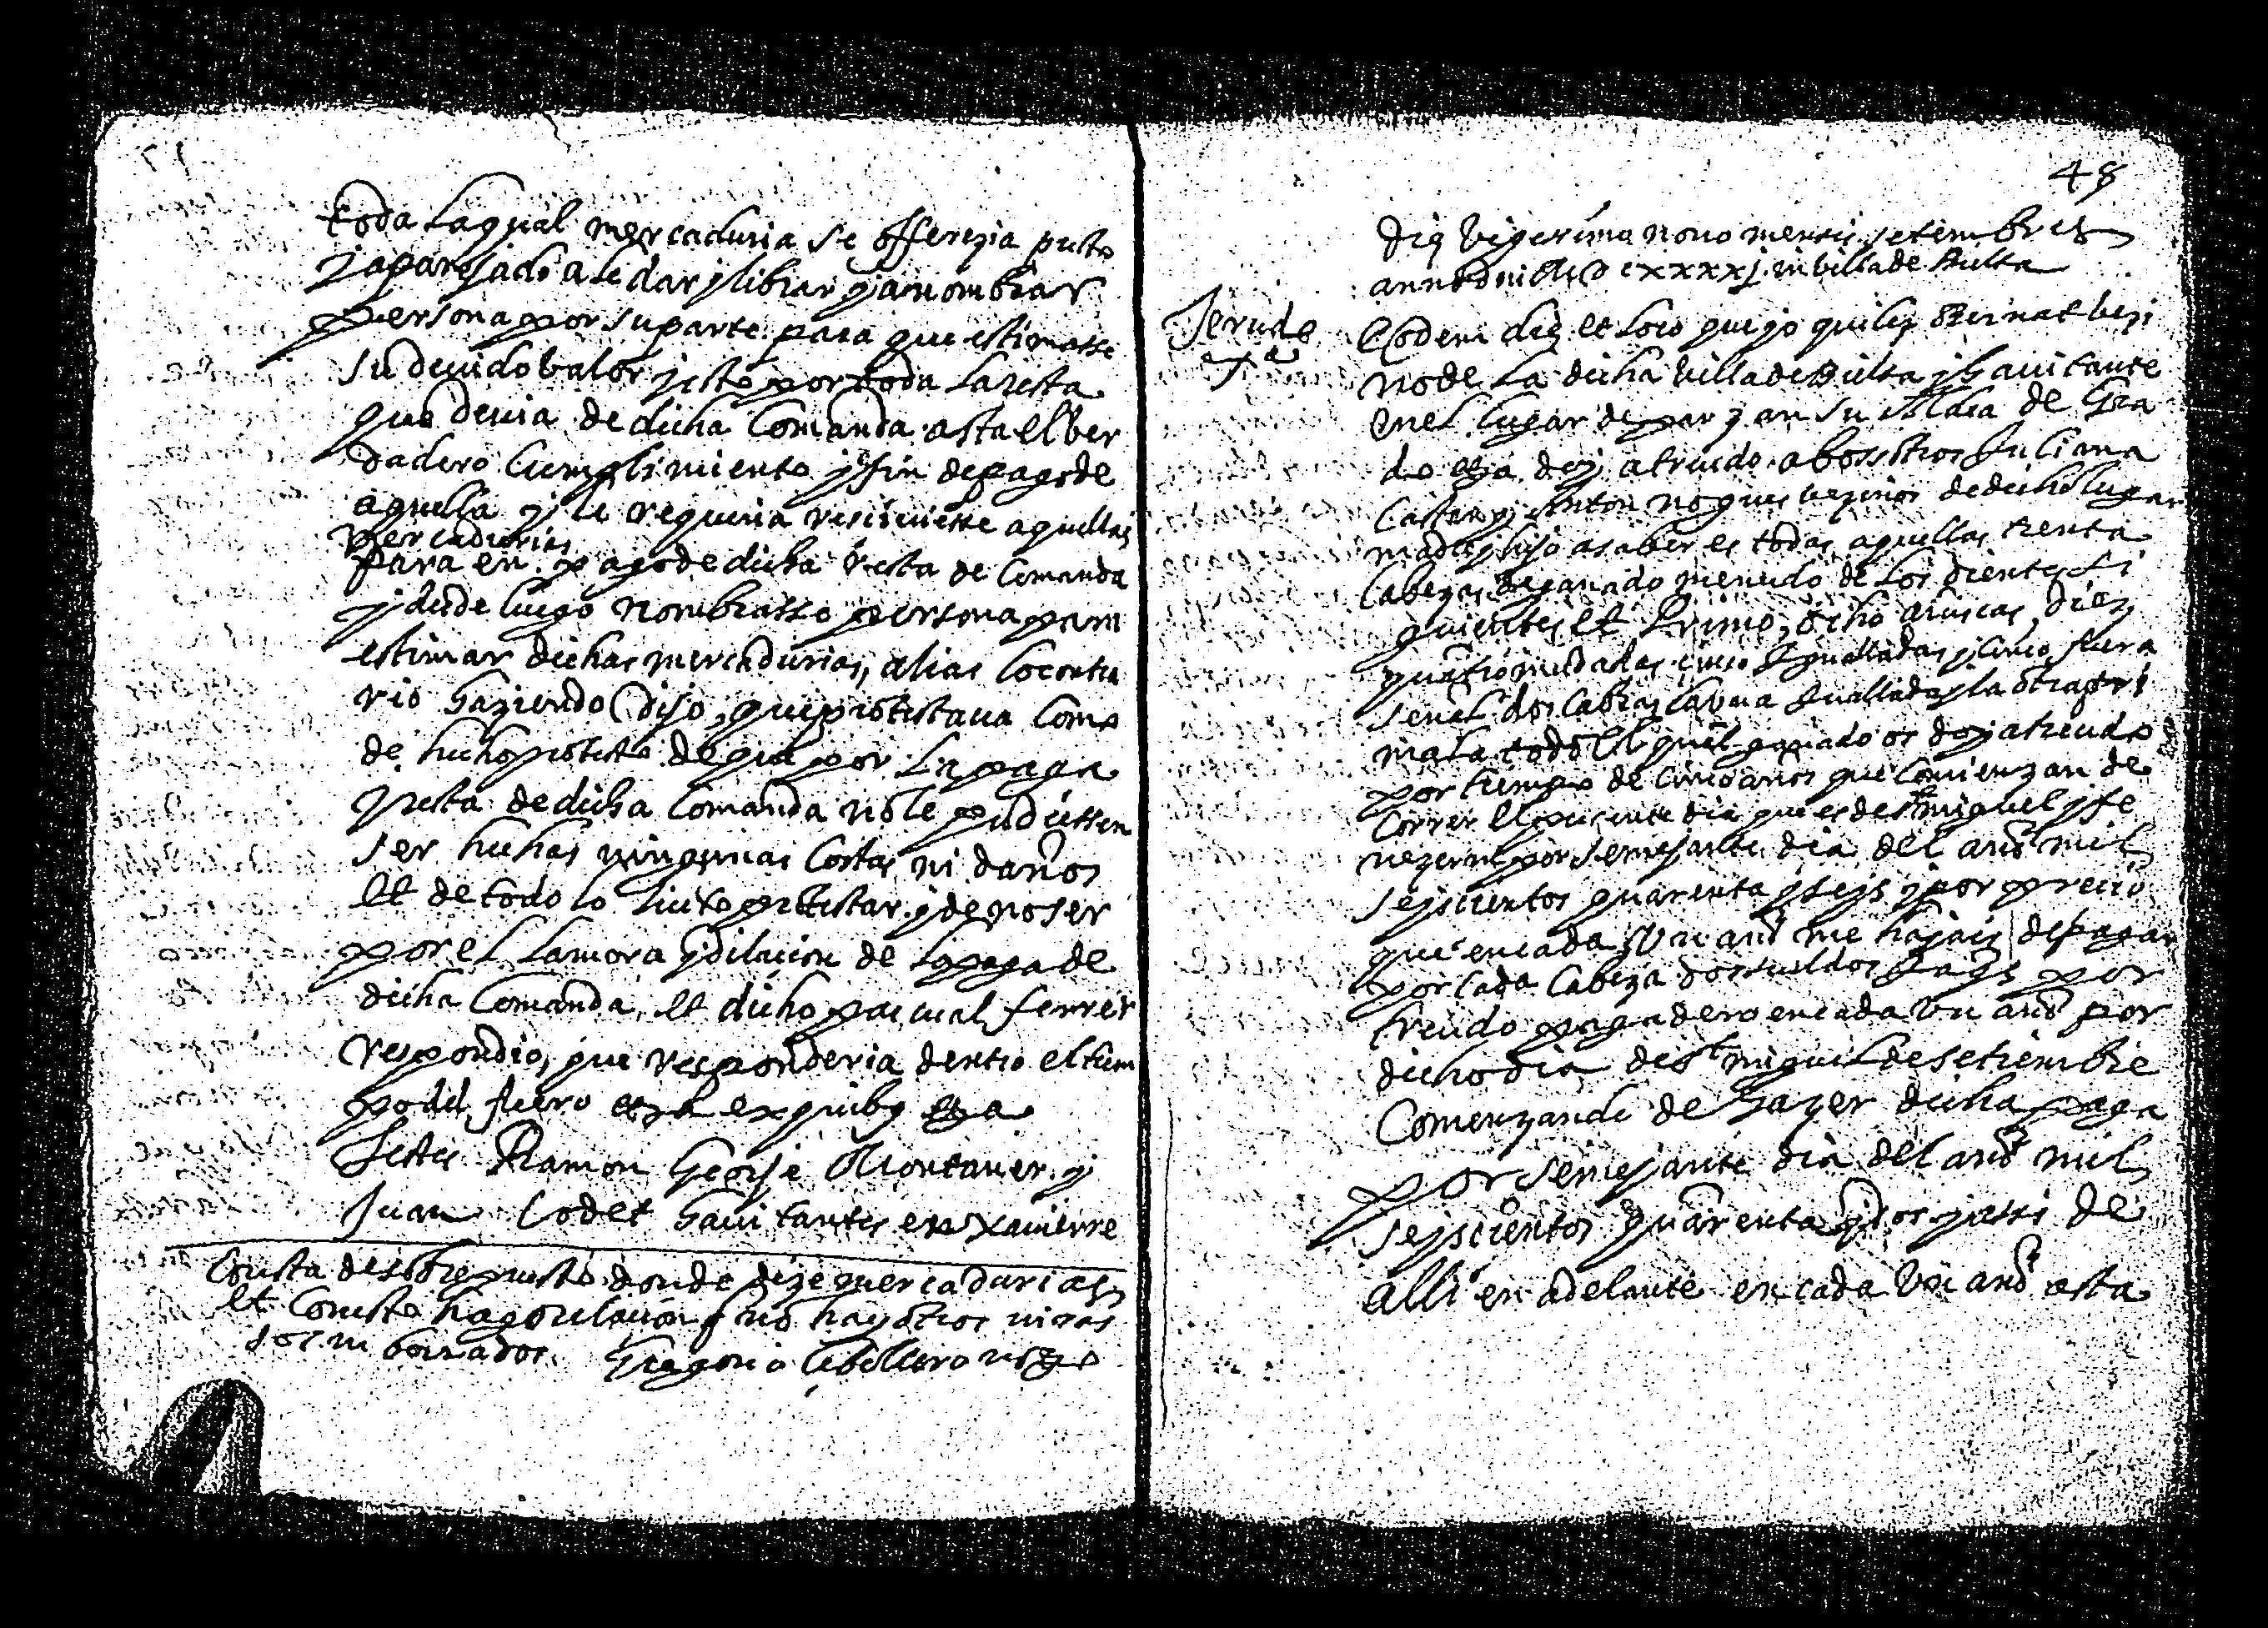 toda la qual mercaduria se offerezia presto
y aparejado a le dar y librar y a nombrar
persona por su parte para que estimasse
su deuido balor y esto por toda la resta
que deuia de dicha Comanda asta el ber
dadero Cumplimiento y fin de pago de
aquella y le requeria resciuiesse aquellas
mercadurias
para en pago de dicha resta de Comanda
y desde luego nombrasse persona para
estimar dichas mercadurias, alias lo contra
rio haziendo dijo, que protestaua Como
de hecho protesto de que por la paga
y resta de dicha Comanda no le pudiessen
ser hechas ningunas Costas ni daños
et de todo lo licito protestar y de no ser
por el la mora y dilacion de la paga de
dicha Comanda, et dicho pascual ferrer
respondio, que responderia dentro el tiem
po del fuero etca ex quibus etca
Testes Ramon George Montaner y
Juan Lodet hauitantes en Xauierre
Consta de sobrepuesto donde dize mercadurias
et Conste hago relacion q no hay otros
dos ni borrados. Gregorio Cebollero nogo
48
Die Vigesimo nono mensis setembris
anno Dni MDCxxxxj in billa de Bielsa
Treudo
Eodem die et loco que yo quilez Bernat bezi
no de la dicha billa de Bielsa y hauitante
en el lugar de parzan su Aldea de Gra
do etca doy a treudo a bosotros Juliana
Castan y Anton nogues bezinos de dicho lugar
madre y hijo a saber es todas aquellas trenta
Cabezas de ganado menudo de los dientes si
guientes et Primo, ocho diez
y quatromudadas cinco y Cinco fuera
señal dos Cabras la una y la otra pri
mala todo El qual ganado os doy a treudo
por tiempo de cinco años que Comienzan de
Correr El presente dia que es de st miguel y fe
nezeran por semejante dia del año mil
seyscientos quarenta y seys y por precio
que en cada Vn año me hajais de pagar
por cada Cabeza dos sueldos Jaqs por
treudo pagadero en cada Vn año por
dicho dia de st miguel de setiembre
Comenzando de hazer dicha paga
por semejante dia del año mil
seyscientos quarenta y dos y assi de
alli en adelante en cada Vn año asta